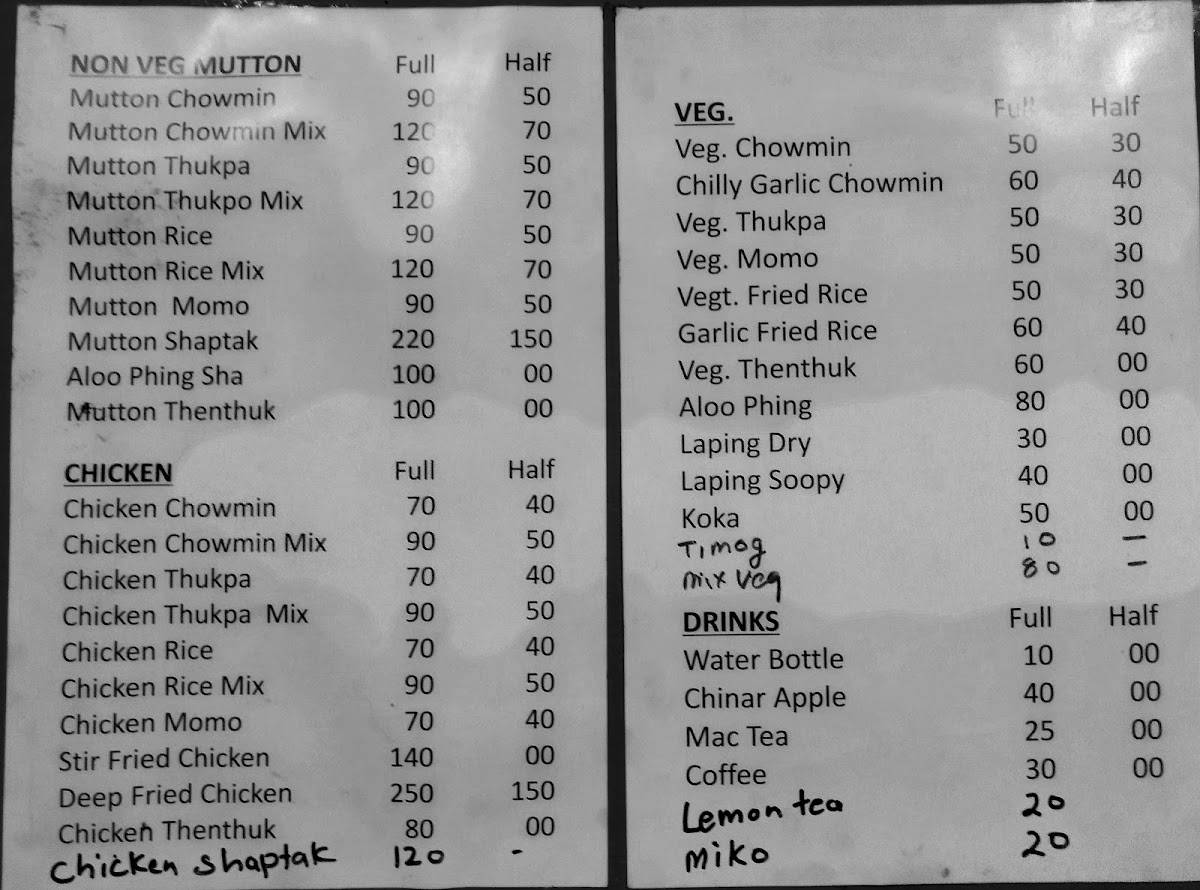 NON VEG MUTTON Full Half
Mutton Chowmin 90 50
Mutton Chowmin Mix 120 70
Mutton Thukpa 90 50
Mutton Thukpo Mix 120 70
Mutton Rice 90 50
Mutton Rice Mix 120 70
Mutton Momo 90 50
Mutton Shaptak 220 150
Aloo Phing Sha 100 00
Mutton Thenthuk 100 00
CHICKEN Full Half
Chicken Chowmin 70 40
Chicken Chowmin Mix 90 50
Chicken Thukpa 70 40
Chicken Thukpa Mix 90 50
Chicken Rice 70 40
Chicken Rice Mix 90 50
Chicken Momo 70 40
Stir Fried Chicken 140 00
Deep Fried Chicken 250 150
Chicken Thenthuk 80 00
Chicken Shaptak 120 -
VEG. Full Half
Veg. Chowmin 50 30
Chilly Garlic Chowmin 60 40
Veg. Thukpa 50 30
Veg. Momo 50 30
Vegt. Fried Rice 50 30
Garlic Fried Rice 60 40
Veg. Thenthuk 60 00
Aloo Phing 80 00
Laping Dry 30 00
Laping Soopy 40 00
Koka 50 00
Timog 10 -
mix veg 80 -
DRINKS Full Half
Water Bottle 10 00
Chinar Apple 40 00
Mac Tea 25 00
Coffee 30 00
Lemon tea 20
miko 20